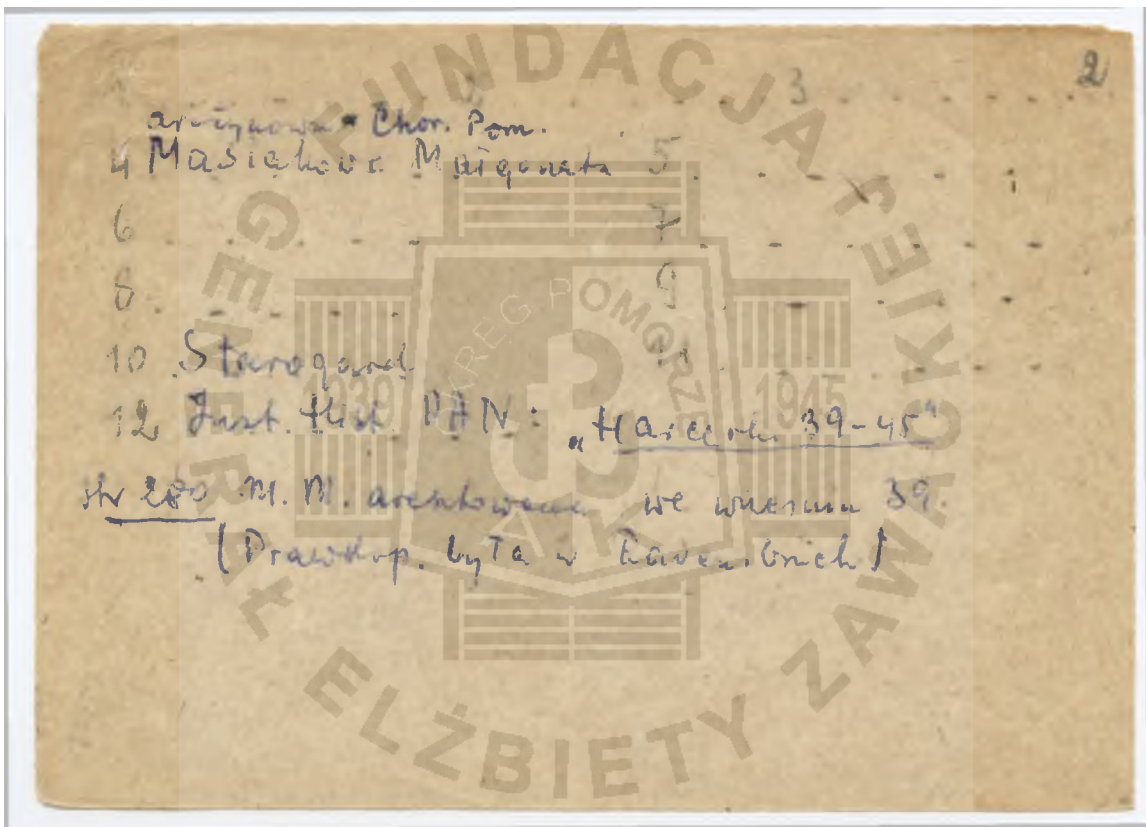 2
3
Chor. Pom.
4 Masiakows. Małgorzata 5
6 7
8 9
10 Starogard
12 Inst. Hist. PAN: „Harcerk. 39-45"
str 280 M. M. aresztowana we wrześniu 39.
(Prawdop. była w Ravensbruck)
FUNDACJA GENERAŁ ELŻBIETY ZAWACKIEJ
OKRĘG POMORZE
1939 1945
AK